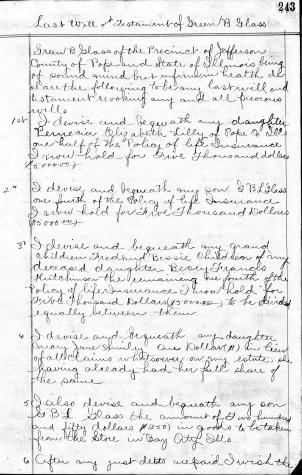 243
Last Will & Testament of Green B Glass
Green B Glass of the Precinct of Jefferson
County of Pope and State of Illinois being
of sound mind but infirm in health de
clare the following to be my last will and
testament revoking any and all previous
wills
1st I devise and bequeath my daughter
Elizabeth Lilly of Pope Co Ills
one half of the Policy of Life Insurance
I now hold for Five Thousand dollars
($5000.00)
2" I devise and bequeath my son G B L Glass
one fourth of the Policy of life Insurance
I now hold for Five Thousand Dollars
($5000.00)
3" I devise and bequeath my grand
children Fred and Bessie Children of my
deceased daughter Francis
Hutchinson the remaining one fourth of the
Policy of life Insurance I now hold for
Five Thousand Dollars ($5000.00) to be divided
equally between them
4 I devise and bequeath my daughter
Mary Jane One Dollar ($1) in lieu
of all claims whatsoever on my estate, she
having already had her full share of
the same
5 I also devise and bequeath my son
G B L Glass the amount of Two hundred
and fifty dollars ($250) in goods to be taken
from the Store in Bay City Ills
6 After my just debts are paid I wish the